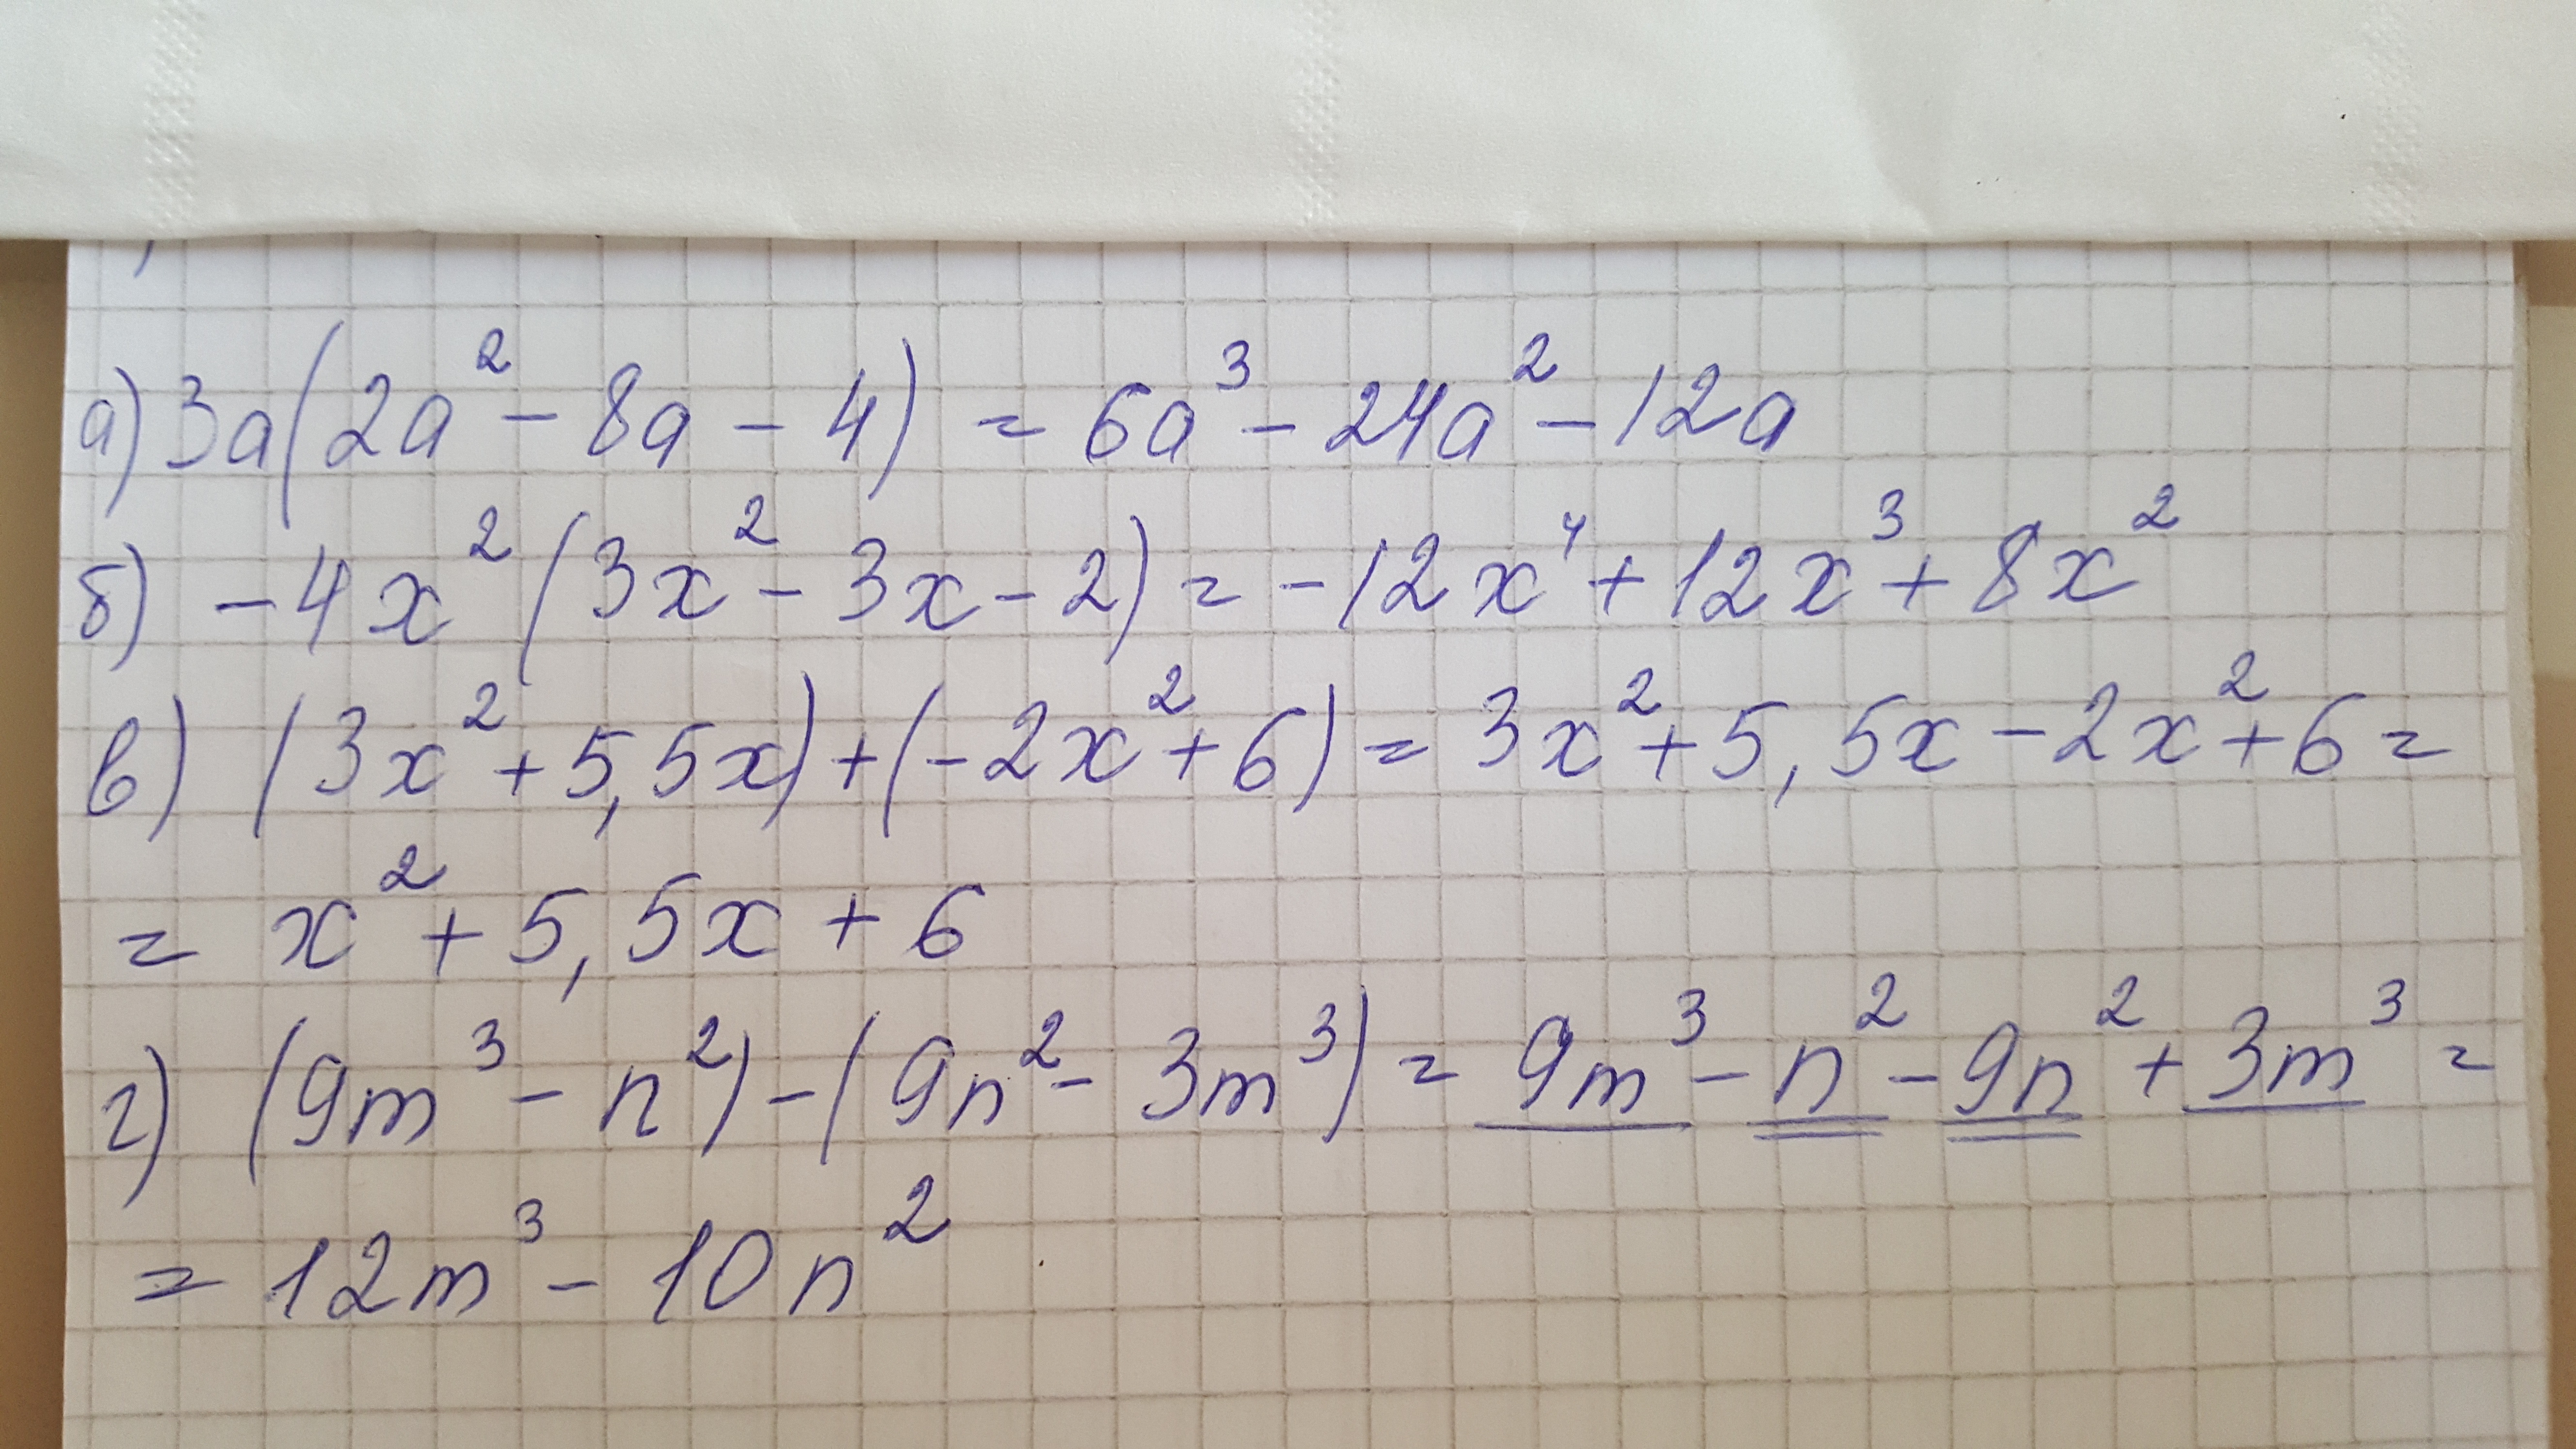 а) 3a(2a² - 8a - 4) = 6a³ - 24a² - 12a
б) -4x²(3x² - 3x - 2) = -12x⁴ + 12x³ + 8x²
в) (3x² + 5,5x) + (-2x² + 6) = 3x² + 5,5x - 2x² + 6 =
= x² + 5,5x + 6
г) (9m³ - n²) - (9n² - 3m³) = 9m³ - n² - 9n² + 3m³ =
= 12m³ - 10n²